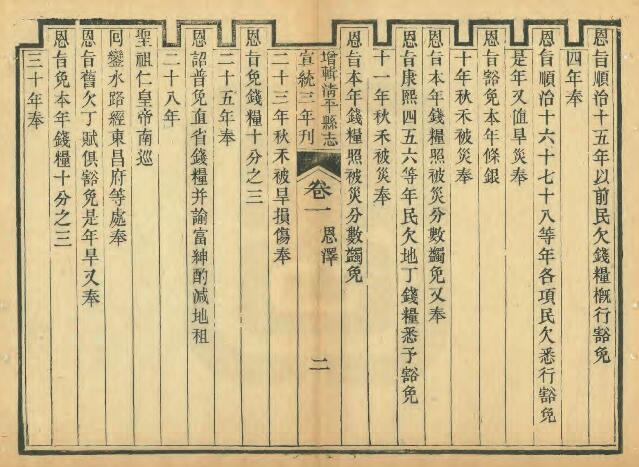 恩旨順治十五年以前民欠錢糧槪行豁免
四年奉
恩旨順治十六十七十八等年各項民欠悉行豁免
是年又值旱災奉
恩旨豁免本年條銀
十年秋禾被災奉
恩旨本年錢糧照被災分數蠲免又奉
恩旨康熙四五六等年民欠地丁錢糧悉予豁免
十一年秋禾被災奉
恩旨本年錢糧照被災分數蠲免
增輯清平縣志
宣統三年刊
卷一 恩澤 二
二十三年秋禾被旱損傷奉
恩旨免錢糧十分之三
二十五年奉
恩詔普免直省錢糧并諭富紳酌減地租
二十八年
聖祖仁皇帝南巡
回鑾水路經東昌府等處奉
恩旨舊欠丁賦俱豁免是年旱又奉
恩旨免本年錢糧十分之三
三十年奉